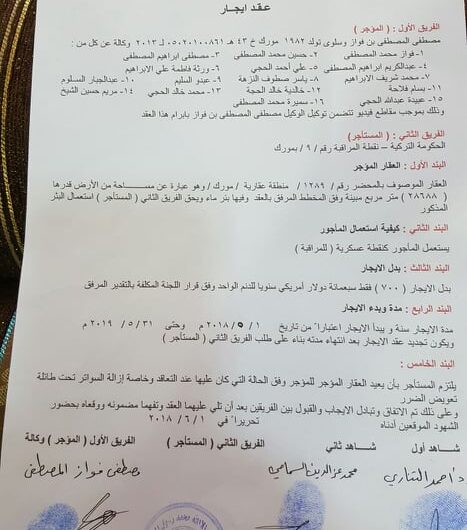 عقد ايجار
الفريق الأول : ( المؤجر )
مصطفى المصطفى بن فواز وسلوى تولد ١٩٨٢ مورك خ ٤٣ هـ ٠٥٠٢٠١٠٠٨٦١ لـ ٢٠١٣ وكالة عن كل من :
١- فواز محمد المصطفى ٢- حسين محمد المصطفى ٣- مصطفى ابراهيم المصطفى
٤- عبدالكريم ابراهيم المصطفى ٥- علي أحمد الحجي ٦- ورثة فاطمة علي الابراهيم
٧- محمد شريف الابراهيم ٨- ياسر صطوف النزهة ٩- عبدو السليم ١٠- عبدالجبار المسلوم
١١- بسام فلاحة ١٢- خالدية خالد الحجة ١٣- محمد خالد الحجي ١٤- مريم حسين الشيخ
١٥- عبيدة عبدالله الحجي ١٦- سميرة محمد المصطفى
وذلك بموجب مقاطع فيديو تتضمن توكيل الوكيل مصطفى المصطفى بن فواز بابرام هذا العقد
الفريق الثاني : ( المستأجر )
الحكومة التركية – نقطة المراقبة رقم / ٩ / بمورك
البند الأول : العقار المؤجر
العقار الموصوف بالمحضر رقم / ١٢٨٩ / منطقة عقارية / مورك / وهو عبارة عن مساحة من الأرض قدرها
( ٢٨٦٨٨ ) متر مربع مبينة وفق المخطط المرفق بالعقد وفيها بئر ماء ويحق الفريق الثاني ( المستأجر ) استعمال البئر
المذكور
البند الثاني : كيفية استعمال المأجور
يستعمل المأجور كنقطة عسكرية ( للمراقبة )
البند الثالث : بدل الايجار
بدل الايجار ( ٧٠٠ ) فقط سبعمائة دولار أمريكي سنويا للدنم الواحد وفق قرار اللجنة المكلفة بالتقدير المرفق
البند الرابع : مدة وبدء الايجار
مدة الايجار سنة و يبدأ الايجار اعتباراً من تاريخ ١ / ٥ / ٢٠١٨ م وحتى ٣١ / ٥ / ٢٠١٩ م
ويكون تجديد عقد الايجار بعد انتهاء مدته بناء على طلب الفريق الثاني ( المستأجر )
البند الخامس :
يلتزم المستأجر بأن يعيد العقار المؤجر للمؤجر وفق الحالة التي كان عليها عند التعاقد وخاصة إزالة السواتر تحت طائلة
تعويض الضرر
وعلى ذلك تم الاتفاق وتبادل الايجاب والقبول بين الفريقين بعد أن تلي عليهما العقد وتفهما مضمونه ووقعاه بحضور
الشهود الموقعين أدناه تحريراً في ١ / ٦ / ٢٠١٨
شاهد أول شاهد ثاني الفريق الثاني ( المستأجر ) الفريق الأول ( المؤجر ) وكالة
د. احمد محمد عز الدين مصطفى فواز المصطفى